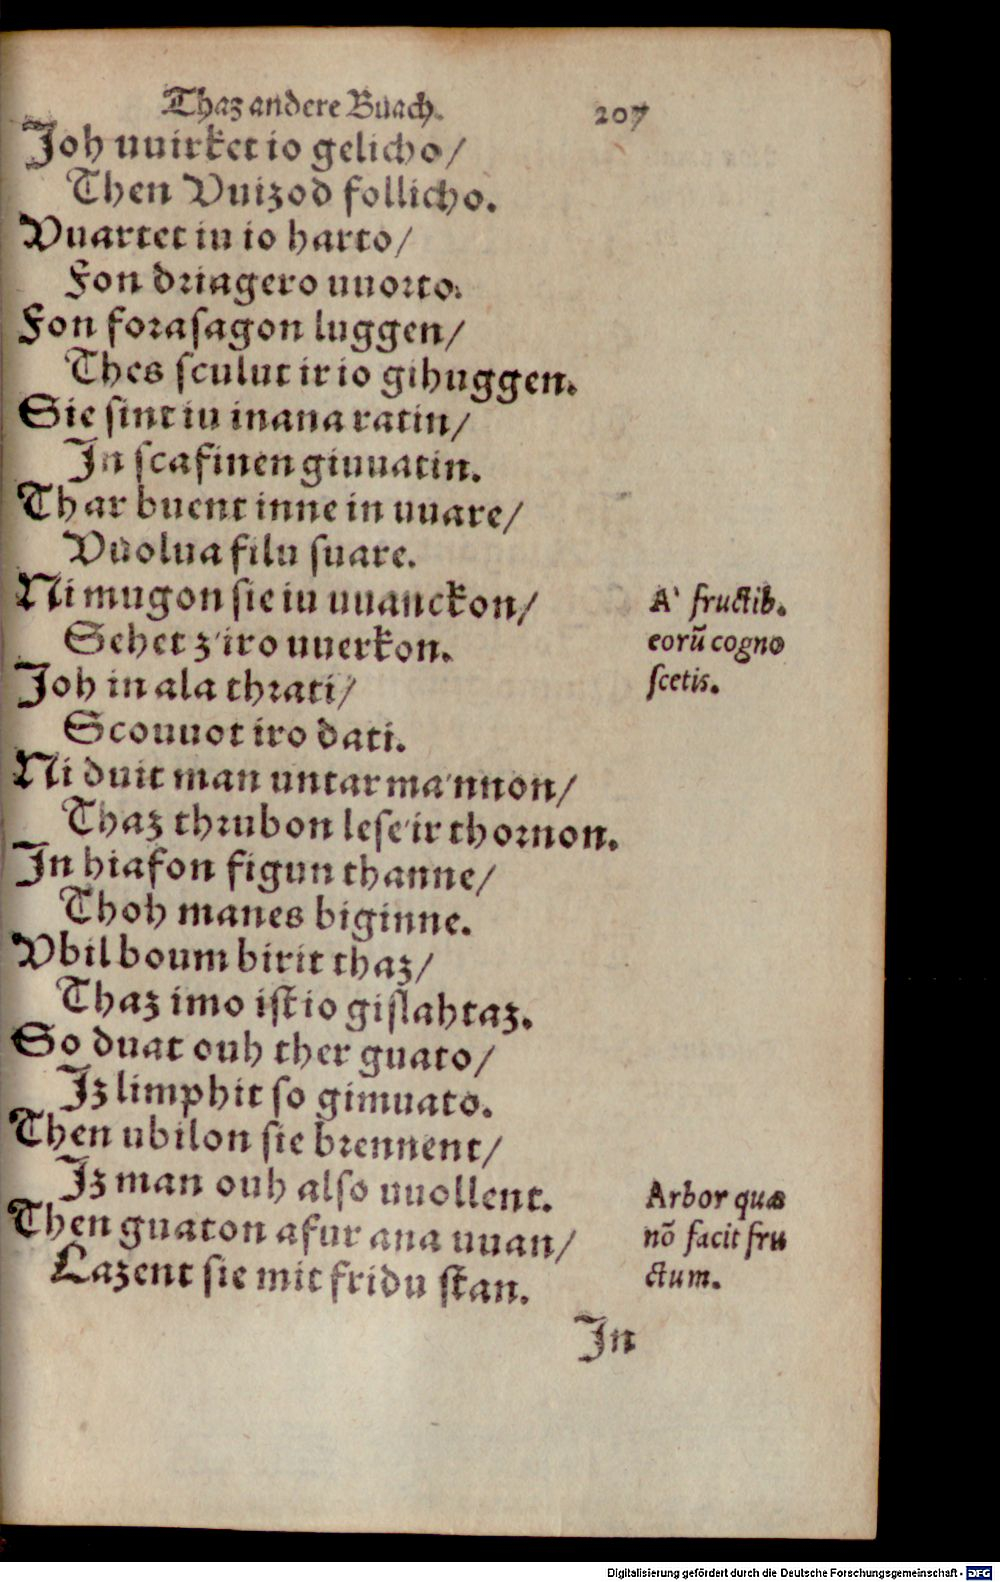 Thaz andere Buach. 207
Joh uuirket io gelicho/
Then Vuizod follicho.
Vuartet iu io harto/
Fon driagero uuorto.
Fon forasagon luggen/
Thes sculut ir io gihuggen.
Sie sint iu in ana ratin/
In scafinen giuuatin.
Thar buent inne in uuare/
Vuolua filu suare.
Ni mugon sie iu uuanckon/
Sehet z'iro uuerkon.
Joh in ala thrati/
Scouuot iro dati.
Ni duit man untar ma'nnon/
Thaz thrubon lese'ir thornon.
In hiafon figun thanne/
Thoh manes biginne.
Vbil boum birit thaz/
Thaz imo ist io gislahtaz.
So duat ouh ther guato/
Iz limphit so gimuato.
Then ubilon sie brennent/
Iz man ouh also uuollent.
Then guaton afur ana uuan/
Lazent sie mit fridu stan.
In
A' fructib.
eorũ cogno
scetis.
Arbor quæ
nõ facit fru
ctum.
Digitalisierung gefördert durch die Deutsche Forschungsgemeinschaft - DFG